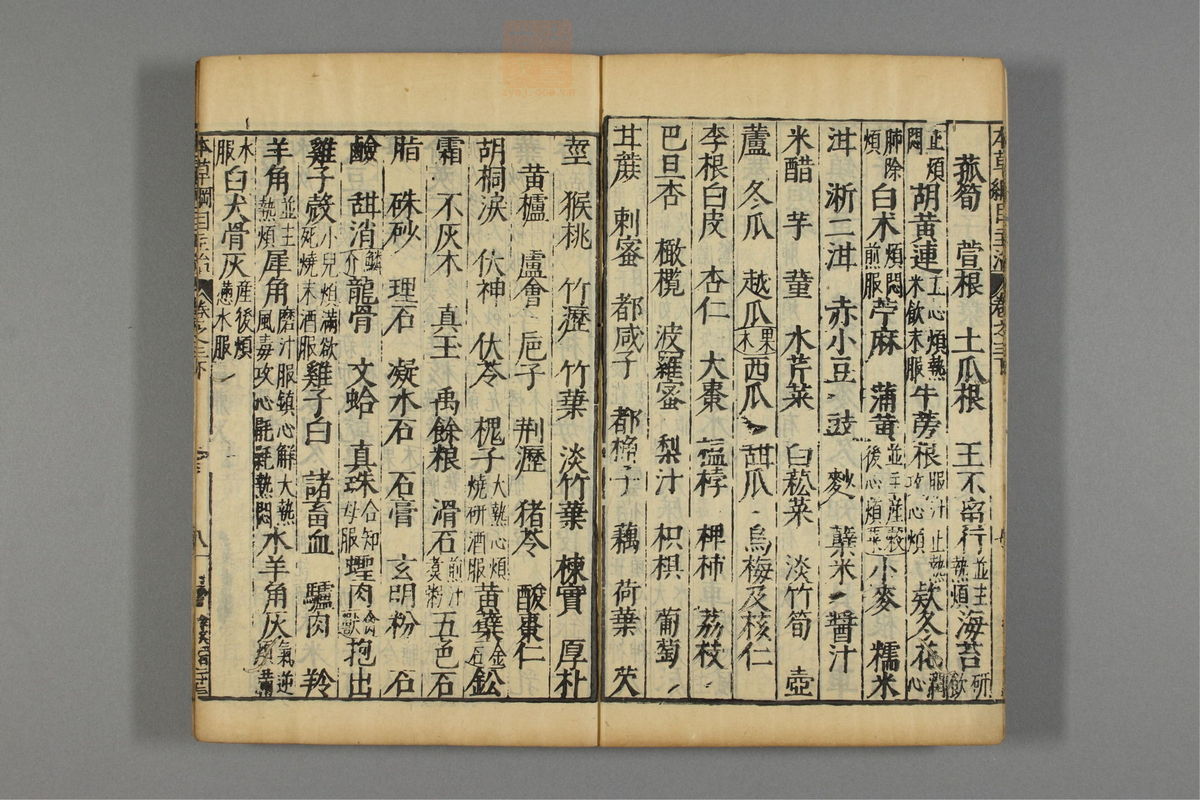 菰筍 菅根 土瓜根 王不留行並主熱煩海苔研飲
止煩悶胡黃連主心煩熱米飲末服牛蒡根服汁止熱攻心煩款冬花潤心
肺除煩白术煩悶煎服苧麻 蒲黃並主産後心煩小麥 糯米
泔 淅二泔 赤小豆 豉 麨 蘖米 醬汁
米醋 芋 蕫 水芹菜 白菘菜 淡竹筍 壺
蘆 冬瓜 越瓜果木西瓜 甜瓜 烏梅及核仁
李根白皮 杏仁 大棗 榲桲 椑柿 荔枝
巴旦杏 橄欖 波羅蜜 梨汁 枳椇 葡萄
甘蔗 刺蜜 都咸子 都桷子 藕 荷葉 芡
莖 猴桃 竹瀝 竹葉 淡竹葉 楝實 厚朴
黃櫨 盧會 巵子 荆瀝 猪苓 酸棗仁
胡桐淚 伏神 伏苓 槐子大熱心煩燒研酒服黃蘗金石鉛
霜 不灰木 真玉 禹餘粮 滑石煎汁煮粥五色石
脂 硃砂 理石 凝水石 石膏 玄明粉 石
鹼 甜消鱗介龍骨 文蛤 真珠合知母服蟶肉禽獸抱出
雞子殼小兒煩滿欲死燒末酒服雞子白 諸畜血 驢肉 羚
羊角並主熱煩犀角磨汁服鎮心解大熱風毒攻心毷氉熱悶水羊角灰氣逆煩滿
水服白犬骨灰産後煩懣水服